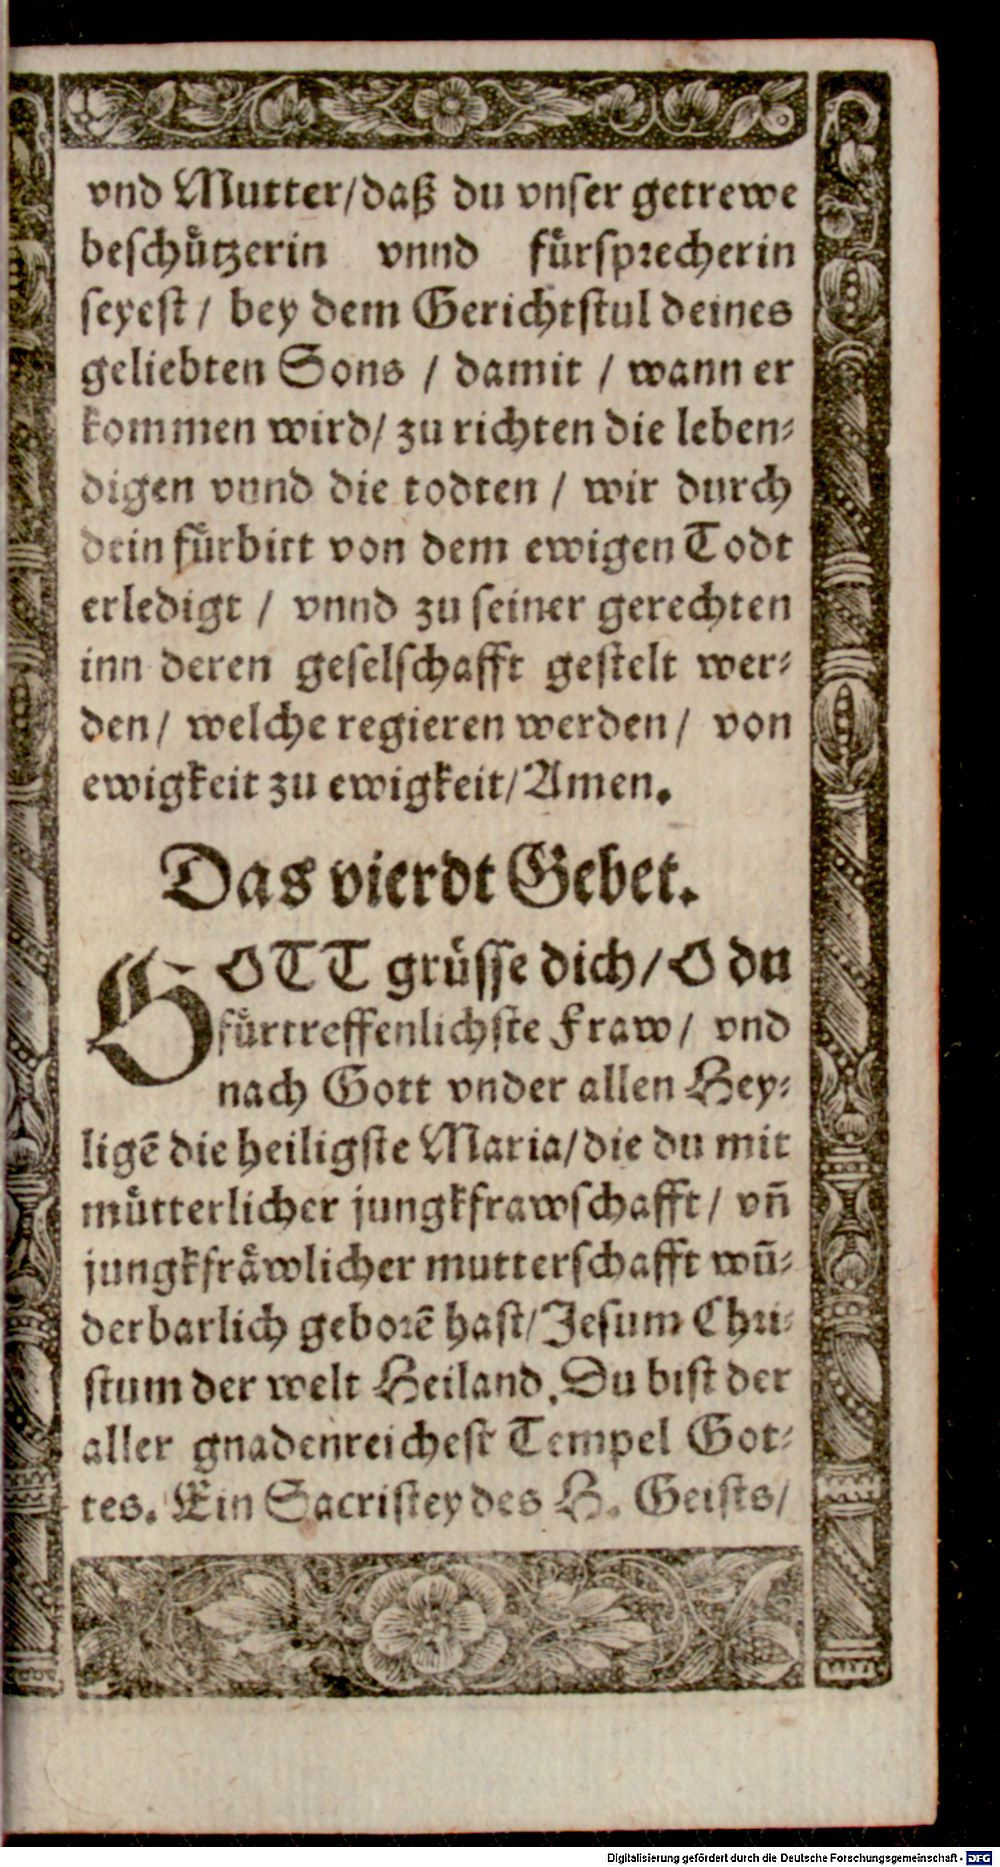 vnd Mutter/daß du vnser getrewe
beschuͤtzerin vnnd fuͤrsprecherin
seyest / bey dem Gerichtstul deines
geliebten Sons / damit / wann er
kommen wird/ zu richten die leben⸗
digen vnnd die todten / wir durch
dein fuͤrbitt von dem ewigen Todt
erledigt / vnnd zu seiner gerechten
inn deren geselschafft gestelt wer⸗
den/ welche regieren werden/ von
ewigkeit zu ewigkeit/Amen.
Das vierdt Gebet.
GOTT gruͤsse dich/O du
fuͤrtreffenlichste Fraw/ vnd
nach Gott vnder allen Hey⸗
ligẽ die heiligste Maria/die du mit
muͤtterlicher jungkfrawschafft/ vñ
jungkfraͤwlicher mutterschafft wũ⸗
derbarlich geborẽ hast/Jesum Chri⸗
stum der welt Heiland. Du bist der
aller gnadenreichest Tempel Got⸗
tes. Ein Sacristey des H. Geists/
Digitalisierung gefördert durch die Deutsche Forschungsgemeinschaft - DFG